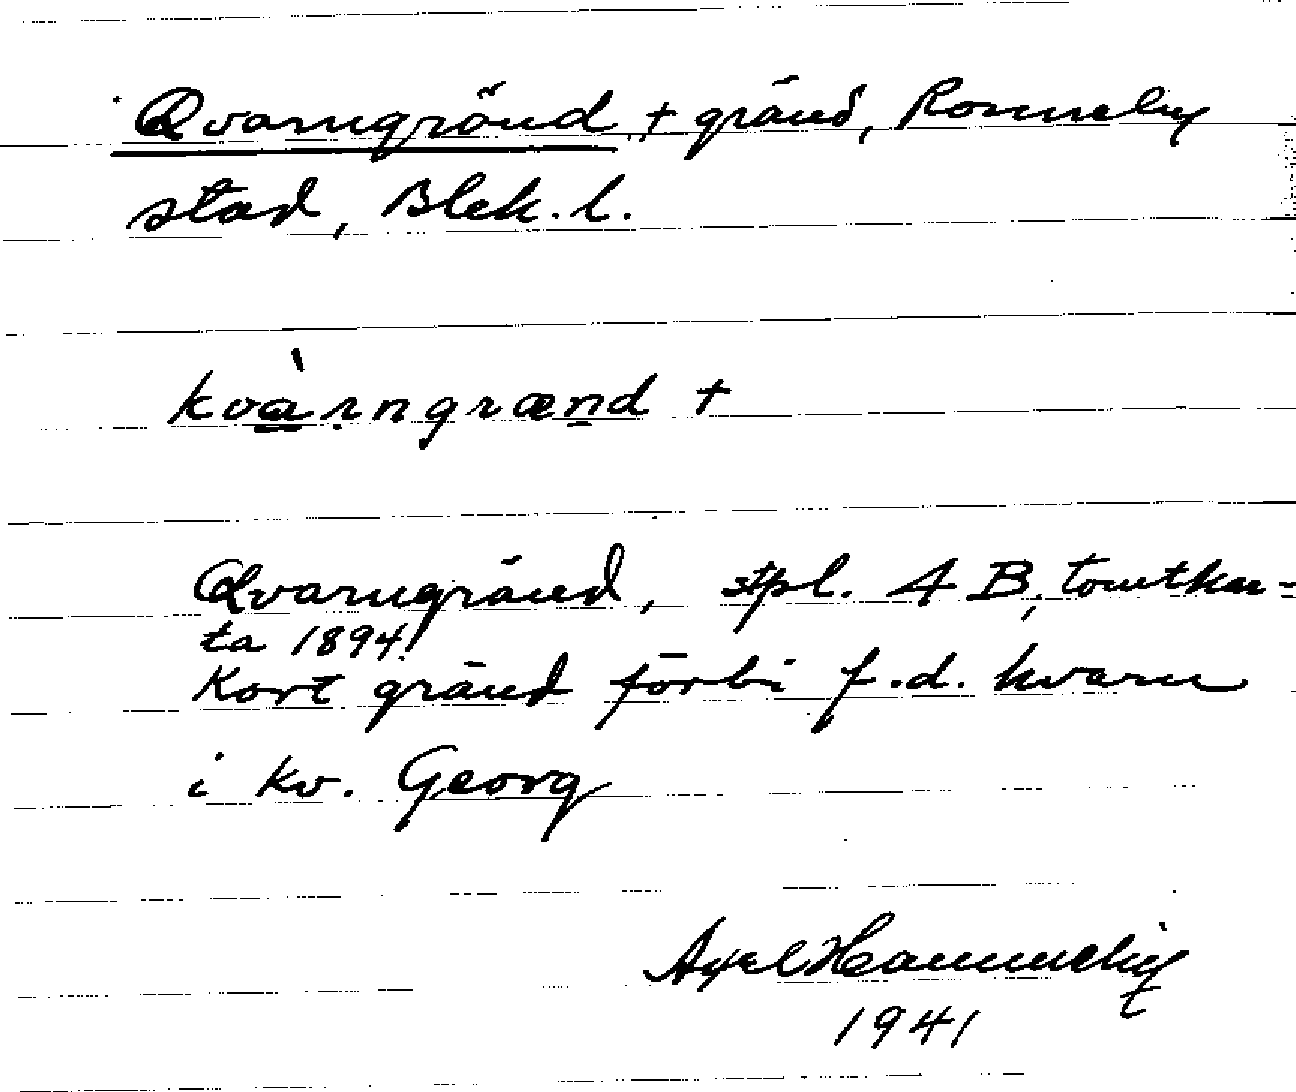 Qvarngränd, + gränd, Ronneby
stad, Blek. l.
kvàrngrænd +
Qvarngränd, stpl. 4 B, tomtkar=
ta 1894!
Kort gränd förbi f.d. kvarn
i kv. Georg
Axel
1941